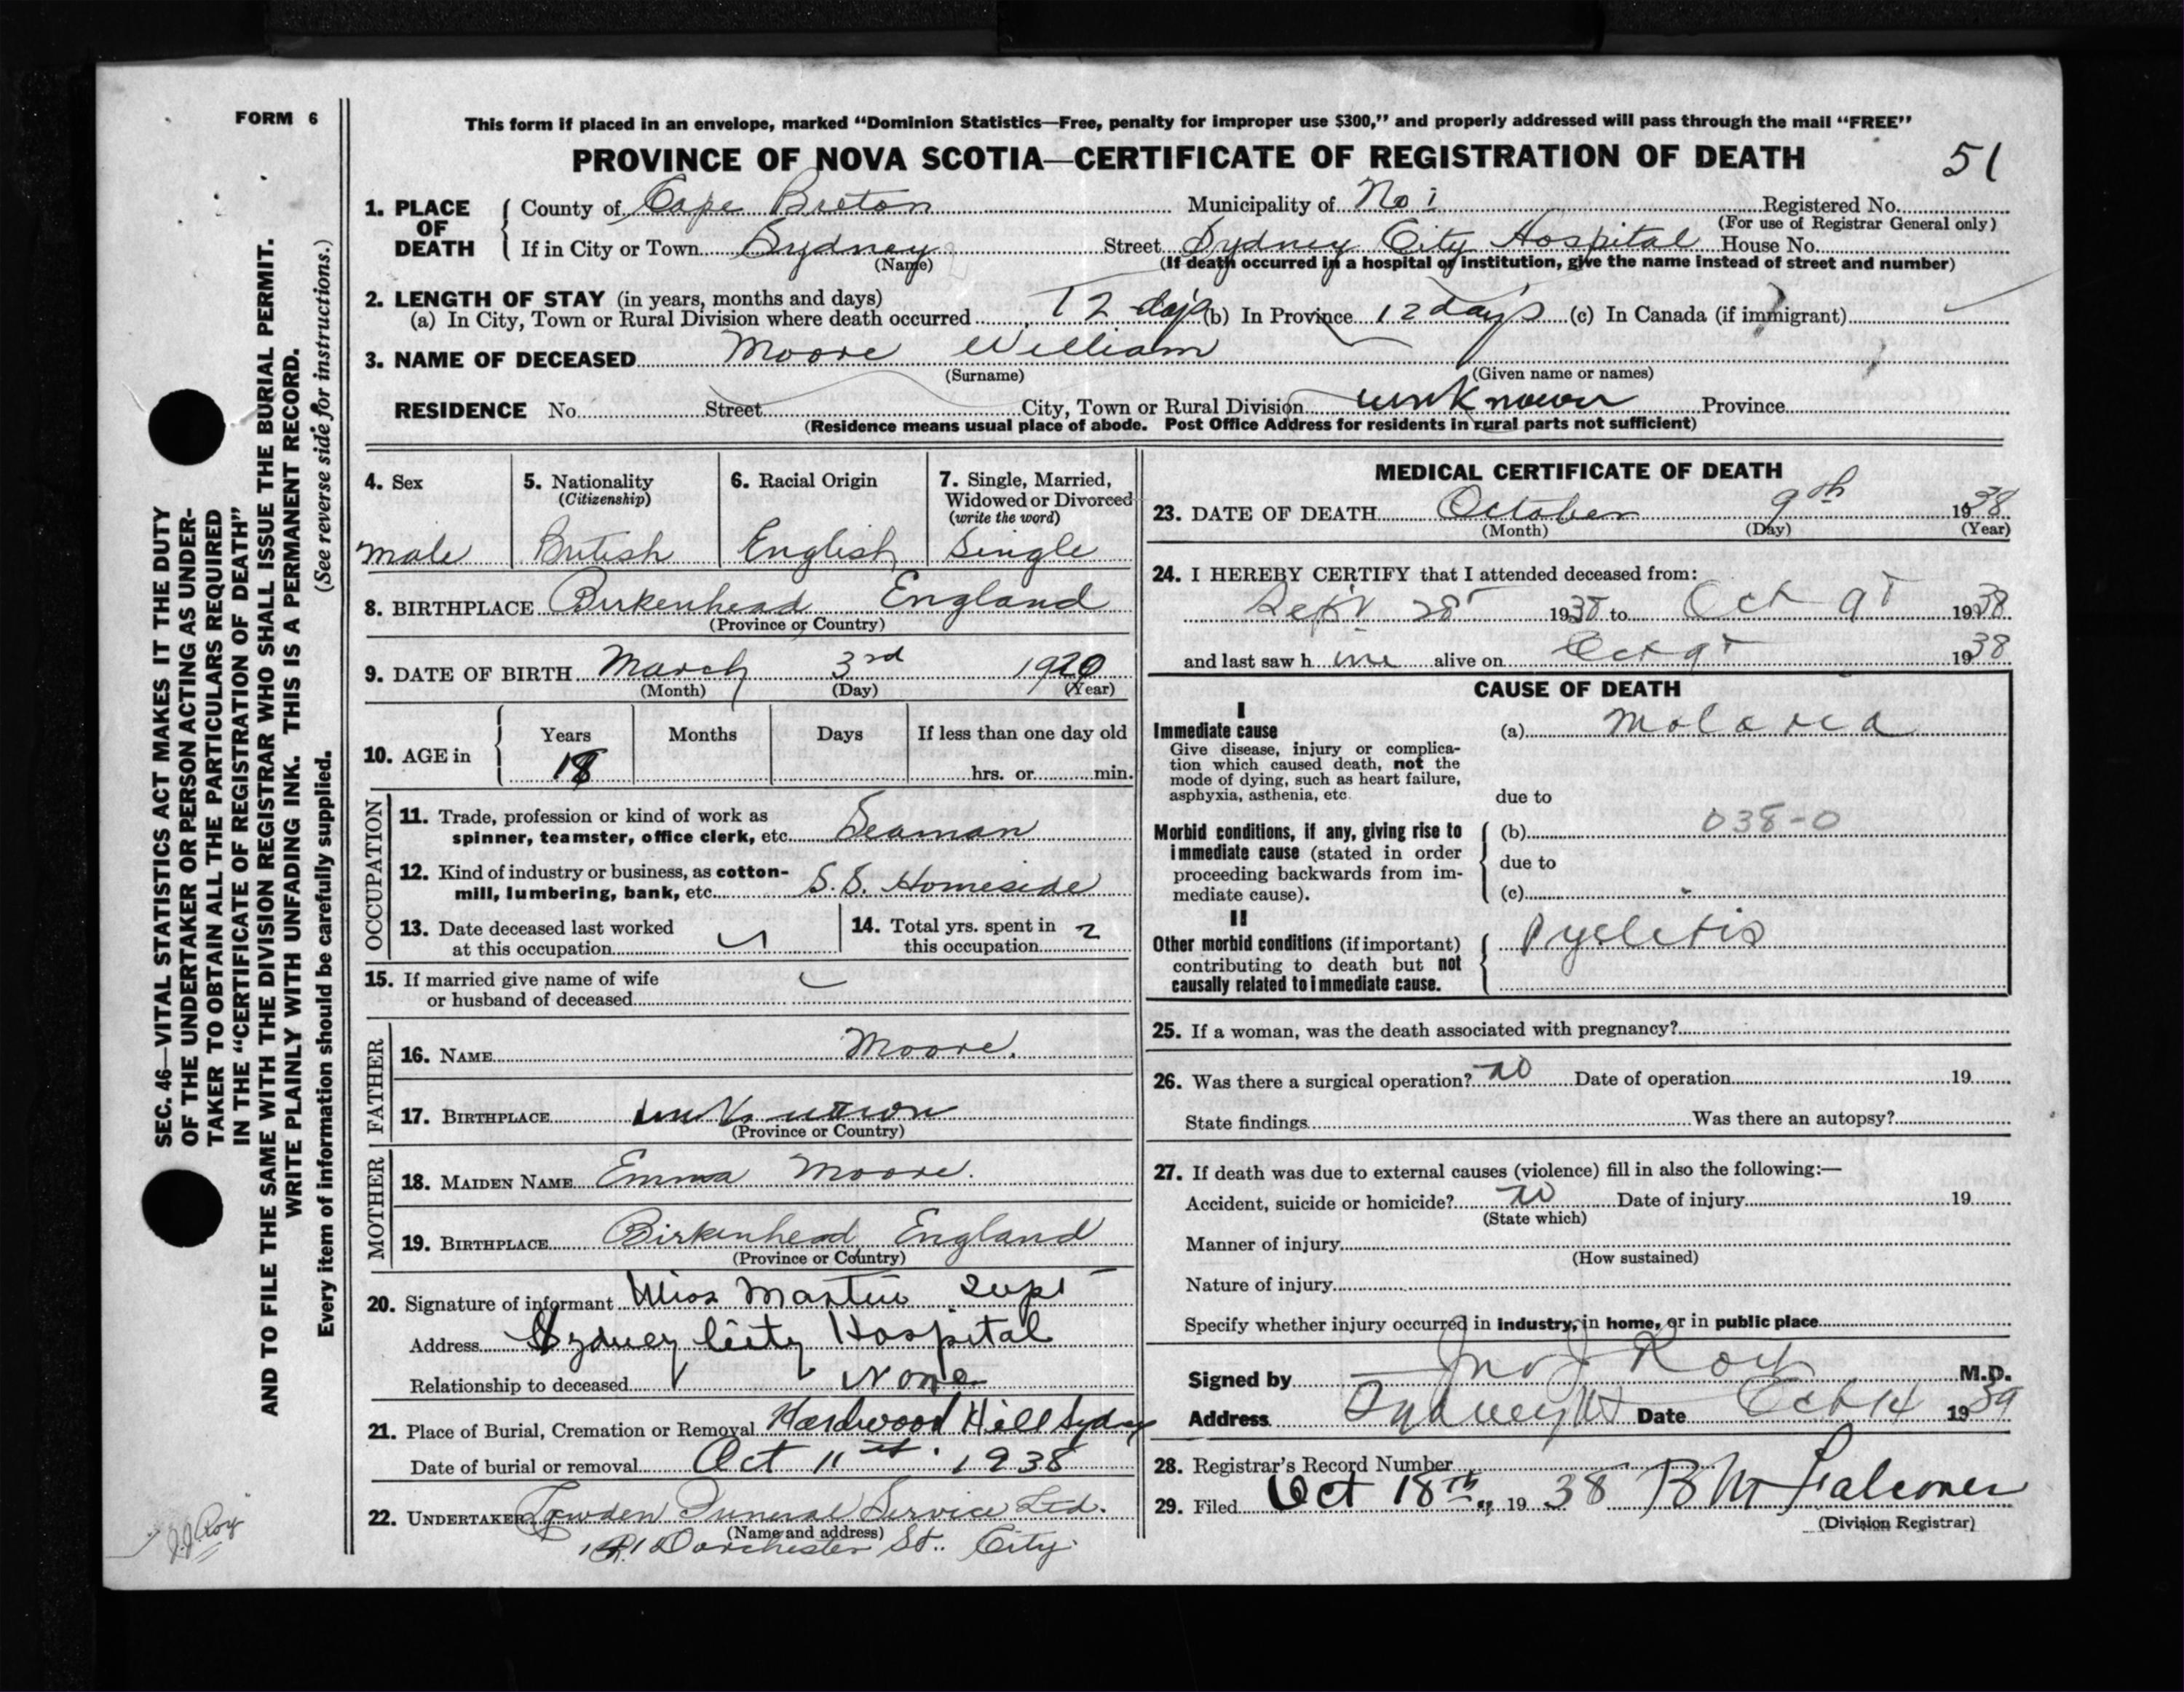 FORM 6
This form if placed in an envelope, marked “Dominion Statistics—Free, penalty for improper use $300,” and properly addressed will pass through the mail “FREE”
PROVINCE OF NOVA SCOTIA—CERTIFICATE OF REGISTRATION OF DEATH 51
1. PLACE OF DEATH
County of Cape Breton Municipality of No 1 Registered No.
(For use of Registrar General only)
If in City or Town Sydney Street Sydney City Hospital House No.
(Name) (If death occurred in a hospital or institution, give the name instead of street and number)
2. LENGTH OF STAY (in years, months and days)
(a) In City, Town or Rural Division where death occurred 12 days (b) In Province 12 days (c) In Canada (if immigrant)
3. NAME OF DECEASED Moore William
(Surname) (Given name or names)
RESIDENCE No. Street City, Town or Rural Division unknown Province
(Residence means usual place of abode. Post Office Address for residents in rural parts not sufficient)
4. Sex
male
5. Nationality
(Citizenship)
British
6. Racial Origin
English
7. Single, Married,
Widowed or Divorced
(write the word)
Single
8. BIRTHPLACE Birkenhead England
(Province or Country)
9. DATE OF BIRTH March 3rd 1920
(Month) (Day) (Year)
10. AGE in
Years Months Days If less than one day old
18 hrs. or min.
OCCUPATION
11. Trade, profession or kind of work as
spinner, teamster, office clerk, etc. Seaman
12. Kind of industry or business, as cotton-
mill, lumbering, bank, etc. S.S. Homeside
13. Date deceased last worked
at this occupation
14. Total yrs. spent in
this occupation 2
15. If married give name of wife
or husband of deceased
FATHER
16. NAME Moore.
17. BIRTHPLACE unknown
(Province or Country)
MOTHER
18. MAIDEN NAME Emma Moore.
19. BIRTHPLACE Birkenhead England
(Province or Country)
20. Signature of informant Miss Martin Supt
Address Sydney City Hospital
Relationship to deceased None
21. Place of Burial, Cremation or Removal Hardwood Hill Sydney
Date of burial or removal Oct 11th. 1938
22. UNDERTAKER Funeral Service Ltd.
(Name and address)
Dorchester St.. City.
MEDICAL CERTIFICATE OF DEATH
23. DATE OF DEATH October 9th 1938
(Month) (Day) (Year)
24. I HEREBY CERTIFY that I attended deceased from:
Sept 28 1938 to Oct 9 1938
and last saw h im alive on Oct 9 1938
CAUSE OF DEATH
I
Immediate cause
Give disease, injury or complica-
tion which caused death, not the
mode of dying, such as heart failure,
asphyxia, asthenia, etc.
(a) Malaria
due to
Morbid conditions, if any, giving rise to
immediate cause (stated in order
proceeding backwards from im-
mediate cause).
(b) 038-0
due to
(c)
II
Other morbid conditions (if important)
contributing to death but not
causally related to immediate cause.
Pyelitis
25. If a woman, was the death associated with pregnancy?
26. Was there a surgical operation? no Date of operation 19
State findings Was there an autopsy?
27. If death was due to external causes (violence) fill in also the following:—
Accident, suicide or homicide? no Date of injury 19
(State which)
Manner of injury
(How sustained)
Nature of injury
Specify whether injury occurred in industry, in home, or in public place
Signed by Jno J Roy M.D.
Address Sydney NS Date Oct 14 1939
28. Registrar's Record Number
29. Filed Oct 18th, 19 38 Falconer
(Division Registrar)
SEC. 46—VITAL STATISTICS ACT MAKES IT THE DUTY
OF THE UNDERTAKER OR PERSON ACTING AS UNDER-
TAKER TO OBTAIN ALL THE PARTICULARS REQUIRED
IN THE “CERTIFICATE OF REGISTRATION OF DEATH”
AND TO FILE THE SAME WITH THE DIVISION REGISTRAR WHO SHALL ISSUE THE BURIAL PERMIT.
WRITE PLAINLY WITH UNFADING INK. THIS IS A PERMANENT RECORD.
Every item of information should be carefully supplied. (See reverse side for instructions.)
J.J. Roy